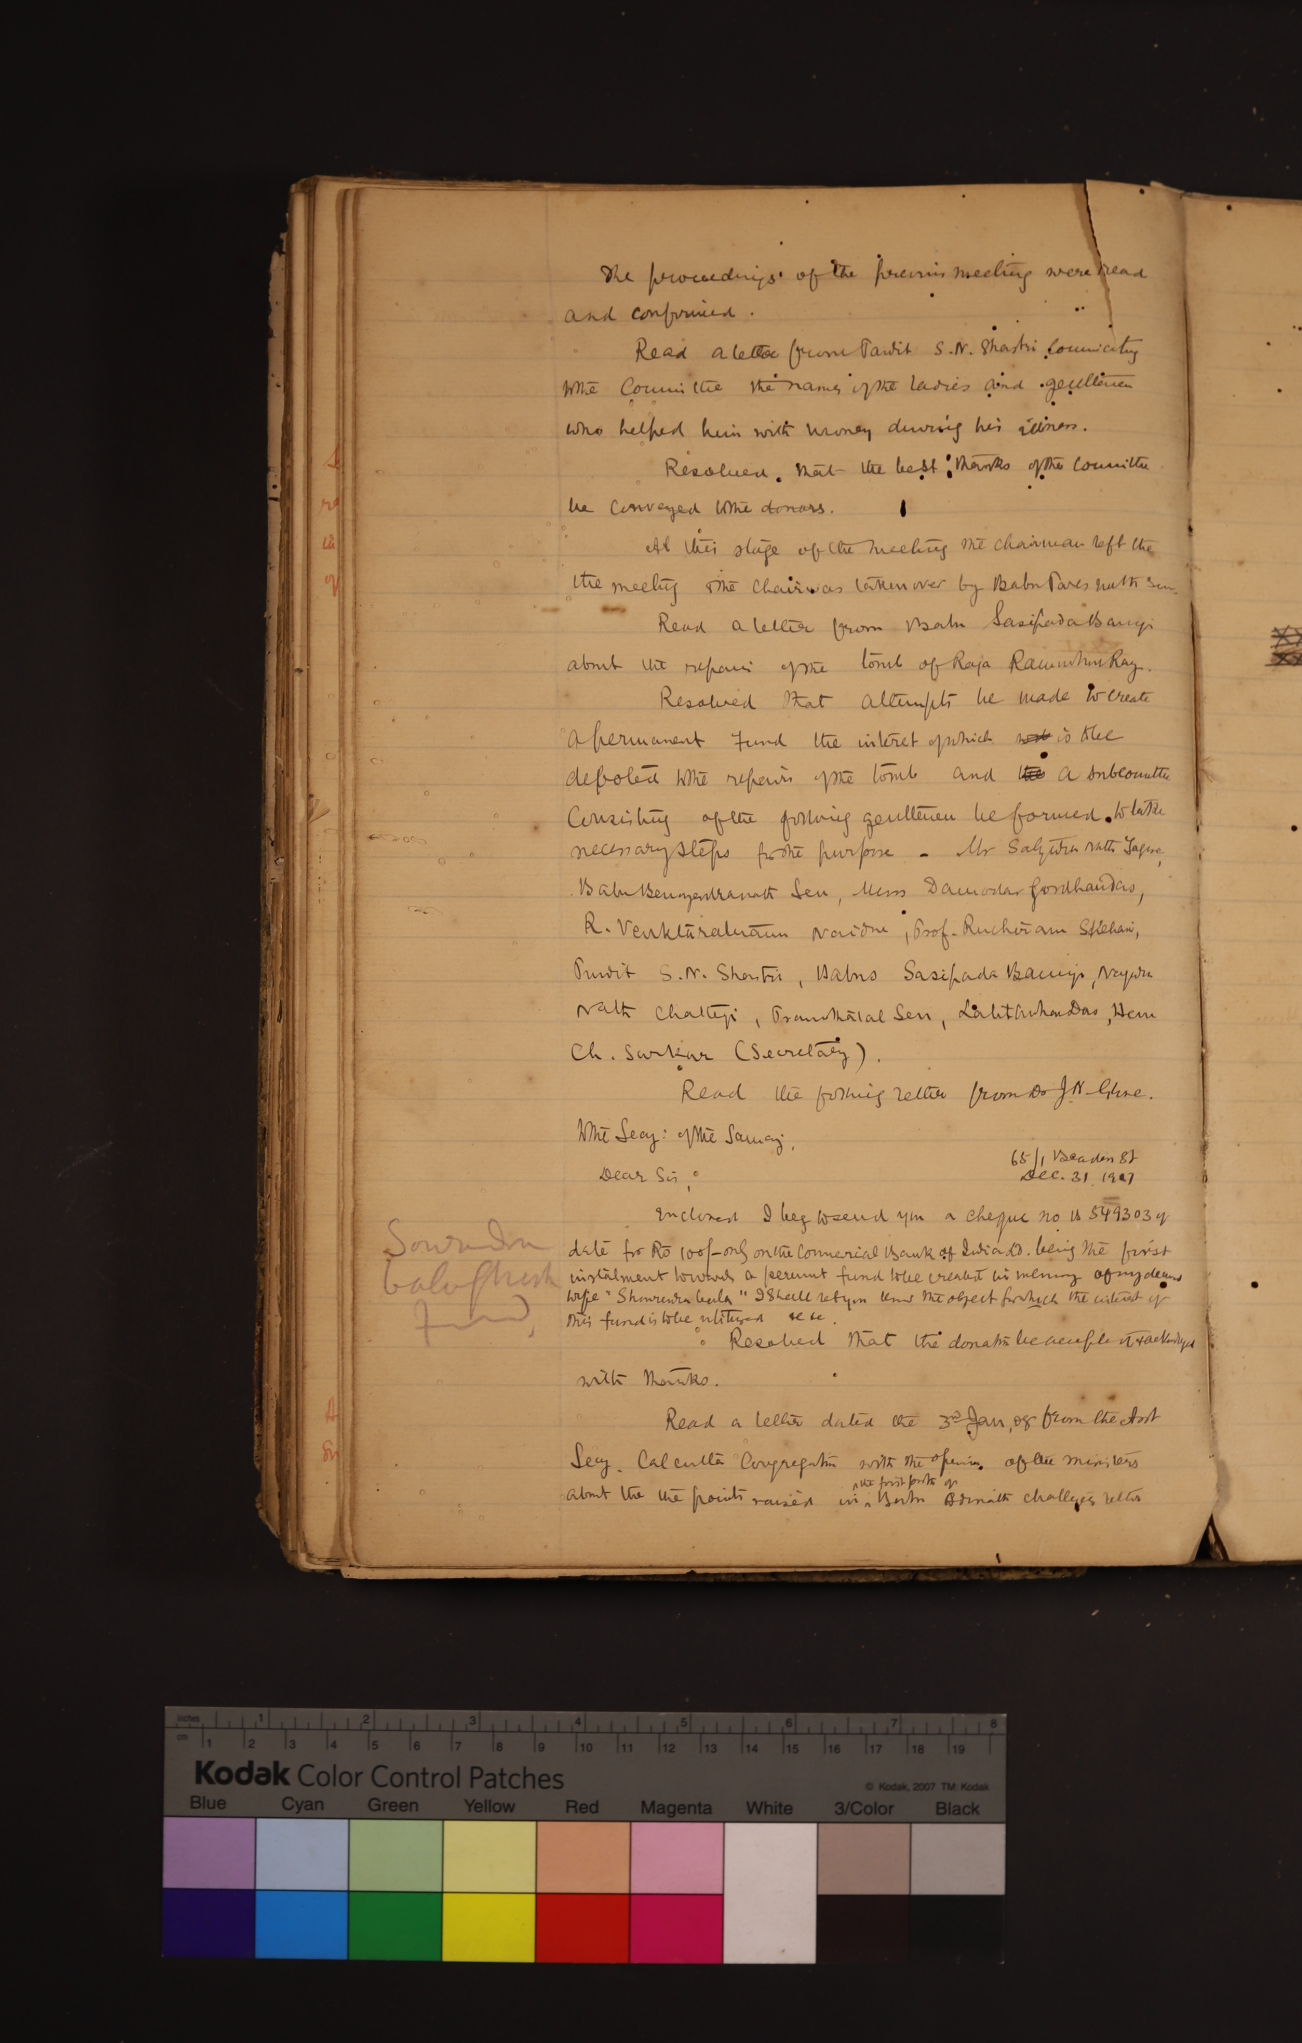 The proceedings of the previous meeting were read
and confirmed.
Read a letter from Pandit S.N. Shastri
to the Committee the names of the ladies and gentlemen
who helped him with money during his illness.
Resolved that the best thanks of the Committee
be conveyed to the donors.
At this stage of the meeting the chairman left the
the meeting & the chair was taken over by Babu Pares nath Sen.
Read a letter from Babu Sasipada Banerji
about the repairs of the tomb of Raja Rammohun Ray.
Resolved that attempts be made to create
a permanent Fund the interest of which is to be
devoted to the repairs of the tomb and the a subcommittee
Consisting of the following gentlemen be formed to take
necessary steps for the purpose - Mr Satyendra Nath Tagore,
Babu Benoyendranath Sen, Messrs Damodar Gordhandas,
R. Venktaratnam Naidu, Prof. Ruchiram Sahani,
Pandit S.N. Shastri, Babus Sasipada Banerji, Nagendra
Nath Chatterji, Sen, Lalit Mohan Das, Hem
Ch. Sarkar (Secretary).
Read the following letter from Dr J.N. Ghose.
To the Secy: of the Samaj,
65/1 Beadon St
Dec. 31. 1907
Dear Sir,
Enclosed I beg to send you a cheque no 549303 of
date for Rs 100/- only on the Commercial Bank of India Ld. being the first
instalment towards a permanent fund to be created in memory of my deceased
wife " " I shall let you know the object for which the interest of
this fund is to be utilised &c &c.
Sourendra
bala Ghosh
Fund,
Resolved that the donation be accepted & acknowledged
with thanks.
Read a letter dated the 3rd Jan, 08 from the Asst
Secy. Calcutta Congregation with the opinion of the ministers
about the the points raised in the first part of Babu Adinath Chatterji's letter
Kodak Color Control Patches
© Kodak, 2007 TM: Kodak
Inches 1 2 3 4 5 6 7 8
cm 1 2 3 4 5 6 7 8 9 10 11 12 13 14 15 16 17 18 19
Blue Cyan Green Yellow Red Magenta White 3/Color Black